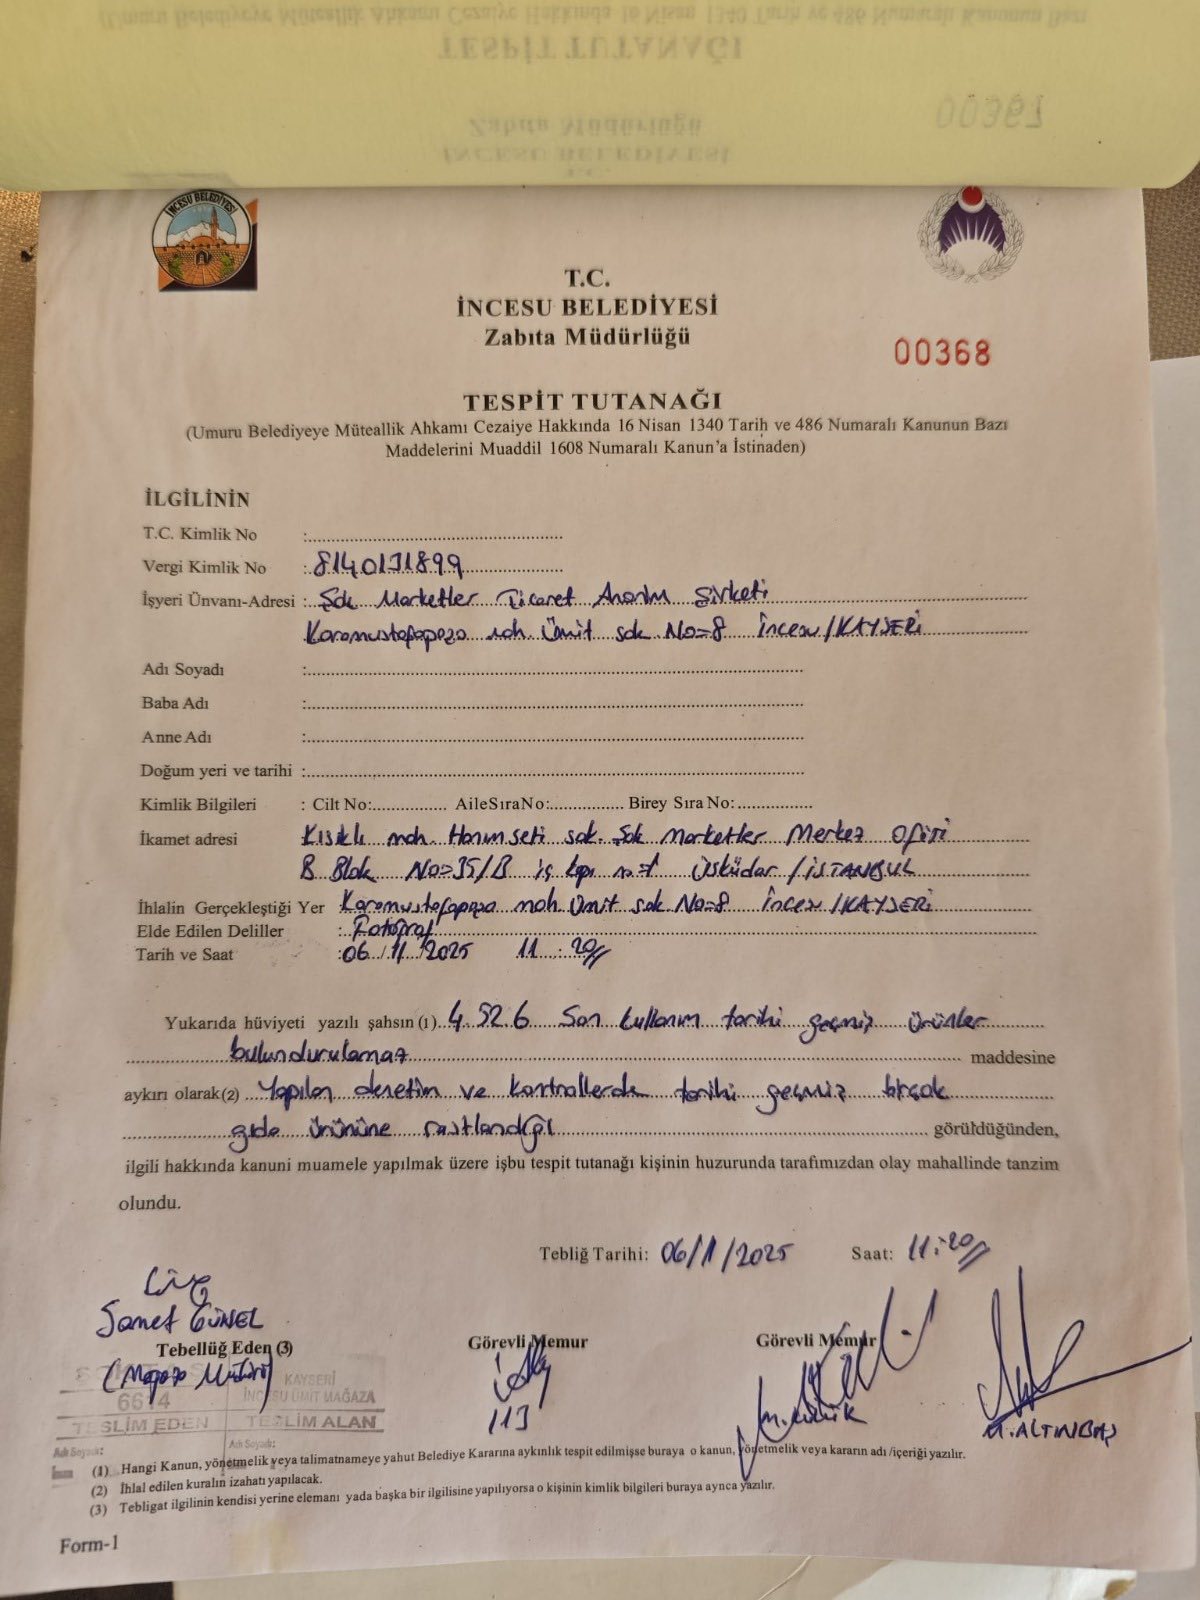 00367
İNCESU BELEDİYESİ
T.C.
İNCESU BELEDİYESİ
Zabıta Müdürlüğü
00368
TESPİT TUTANAĞI
(Umuru Belediyeye Müteallik Ahkamı Cezaiye Hakkında 16 Nisan 1340 Tarih ve 486 Numaralı Kanunun Bazı
Maddelerini Muaddil 1608 Numaralı Kanun’a İstinaden)
İLGİLİNİN
T.C. Kimlik No :
Vergi Kimlik No : 8140131899
İşyeri Ünvanı-Adresi : Şok Marketler Ticaret Anonim Şirketi
Karamustafapaşa mah. Ümit sok. No=8 İncesu/KAYSERİ
Adı Soyadı :
Baba Adı :
Anne Adı :
Doğum yeri ve tarihi :
Kimlik Bilgileri : Cilt No: AileSıraNo: Birey Sıra No:
İkamet adresi Kısıklı mah. Hanımseti sok. Şok Marketler Merkez Ofisi
B Blok No=35/B iç kapı no=1 Üsküdar/İSTANBUL
İhlalin Gerçekleştiği Yer Karamustafapaşa mah Ümit sok No=8 İncesu/KAYSERİ
Elde Edilen Deliller : Fotoğraf
Tarih ve Saat : 06/11/2025 11:20
Yukarıda hüviyeti yazılı şahsın (1) 4.52.6 Son kullanım tarihi geçmiş ürünler
bulundurulamaz maddesine
aykırı olarak(2) Yapılan denetim ve kontrollerde tarihi geçmiş birçok
gıda ürününe rastlandığı görüldüğünden,
ilgili hakkında kanuni muamele yapılmak üzere işbu tespit tutanağı kişinin huzurunda tarafımızdan olay mahallinde tanzim
olundu.
Tebliğ Tarihi: 06/11/2025 Saat: 11:20
Samet GÜNEL
Tebellüğ Eden (3) Görevli Memur Görevli Memur
(Mağaza Müdürü)
KAYSERİ
6614 İNCESU ÜMİT MAĞAZA
TESLİM EDEN TESLİM ALAN
113
M. ALTINBAŞ
Adı Soyadı: Adı Soyadı:
İmza
(1) Hangi Kanun, yönetmelik veya talimatnameye yahut Belediye Kararına aykırılık tespit edilmişse buraya o kanun, yönetmelik veya kararın adı /içeriği yazılır.
(2) İhlal edilen kuralın izahatı yapılacak.
(3) Tebligat ilgilinin kendisi yerine elemanı yada başka bir ilgilisine yapılıyorsa o kişinin kimlik bilgileri buraya ayrıca yazılır.
Form-1